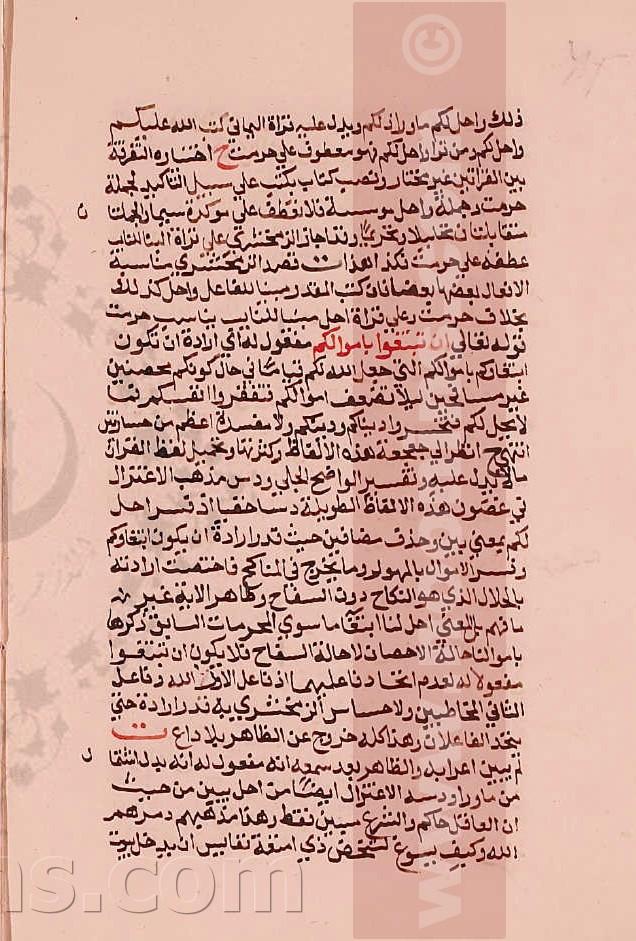 ذلك واحل لكم ما وراء ذلكم ويدل عليه قراة اليماني كتب الله عليكم
واحل لكم ومن قرا واحل لكم فهو معطوف على حرمت ح اختاره التفرقة
بين القراتين غير مختار وانتصب كتاب بكتب على سبيل التاكيد لجملة
حرمت وجملة واحل موسسة فلا تعطف على موكدة سيما والجملتان
متقابلتان تحليلا وتحريما وقد اجاز الزمخشري على قراة البنا للنايب
عطفه على حرمت فكذا هذا ت قصد الزمخشري مناسبة
الافعال بعضها بعضا فان كتب المقدر مبنيا للفاعل واحل كذلك
بخلاف حرمت وعلى قراة احل مبنيا للنايب يناسب حرمت
قوله تعالى ان تبتغوا باموالكم مفعول له اي ارادة ان تكون
ابتغاوكم باموالكم التي جعل الله لكم قياما في حال كونكم محصنين
غير مسافحين ليلا تضيعوا اموالكم وتفقروا انفسكم فيما
لا يحل لكم فتخسروا دنياكم ودينكم ولا مفسدة اعظم من خسارتين
انتهى ح انظر الى جمجمة هذه الالفاظ وكثرتها وتحميل لفظ القران
ما لا يدل عليه وتفسير الواضح الجلي ودس مذهب الاعتزال
في غضون هذه الالفاظ الطويلة دسا خفيا اذ فسر احل
لكم بمعنى بين وحذف مضافين حيث قدر ارادة ان يكون ابتغاوكم
وفسر الاموال بالمهور وما يخرج في المناكح فاختصت ارادته
بالحلال الذي هو النكاح دون السفاح وظاهر الاية غير
ما فهم بل المعنى احل لنا ابتغا ما سوى المحرمات السابق ذكرها
باموالنا حالة الاحصان لا حالة السفاح فلا يكون ان تبتغوا
مفعولا له لعدم اتحاد فاعليهما اذ فاعل الاول الله وفاعل
الثاني المخاطبين ولا حساس الزمخشري به قدر ارادة حتى
يتحد الفاعلان وهذا كله خروج عن الظاهر بلا داع ت
لم يبين اعرابه والظاهر بعد سمعه انه مفعول له انه بدل اشتمال
من ما ودسه الاعتزال ايضا من احل بين من حيث
ان العاقل حاكم والشرع مبين فقط وهذا مذهبهم دمرهم
الله وكيف يسوغ لشخص ذي امتعة نفايس ان يدخل بيوت
www.
ns.com
©